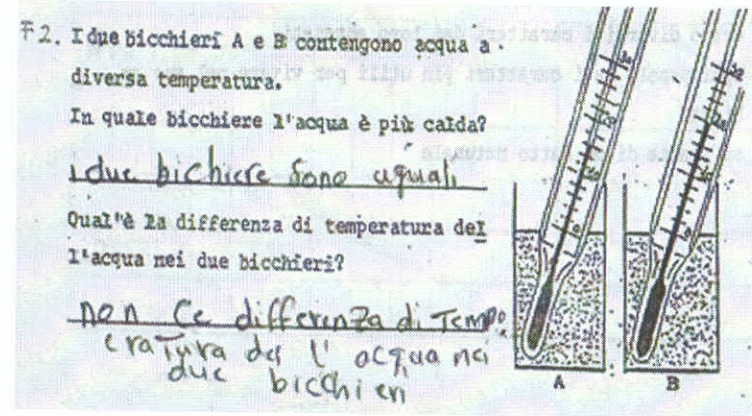 F2. I due bicchieri A e B contengono acqua a
diversa temperatura.
In quale bicchiere l'acqua è più calda?
I due bichiere sono uguali
Qual'è la differenza di temperatura del
l'acqua nei due bicchieri?
non ce differenza di Temp
eratura del l' acqua nei
due bicchieri
A B